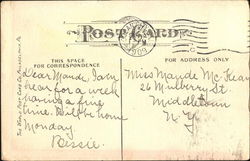 POST CARD
1909
THIS SPACE
FOR CORRESPONDENCE
FOR ADDRESS ONLY
Dear Maude, Was
near for a week
having a fine
time. Will be home
Monday
Bessie.
Miss Maude McKean
26 Mulberry St
Middletown
N. Y.